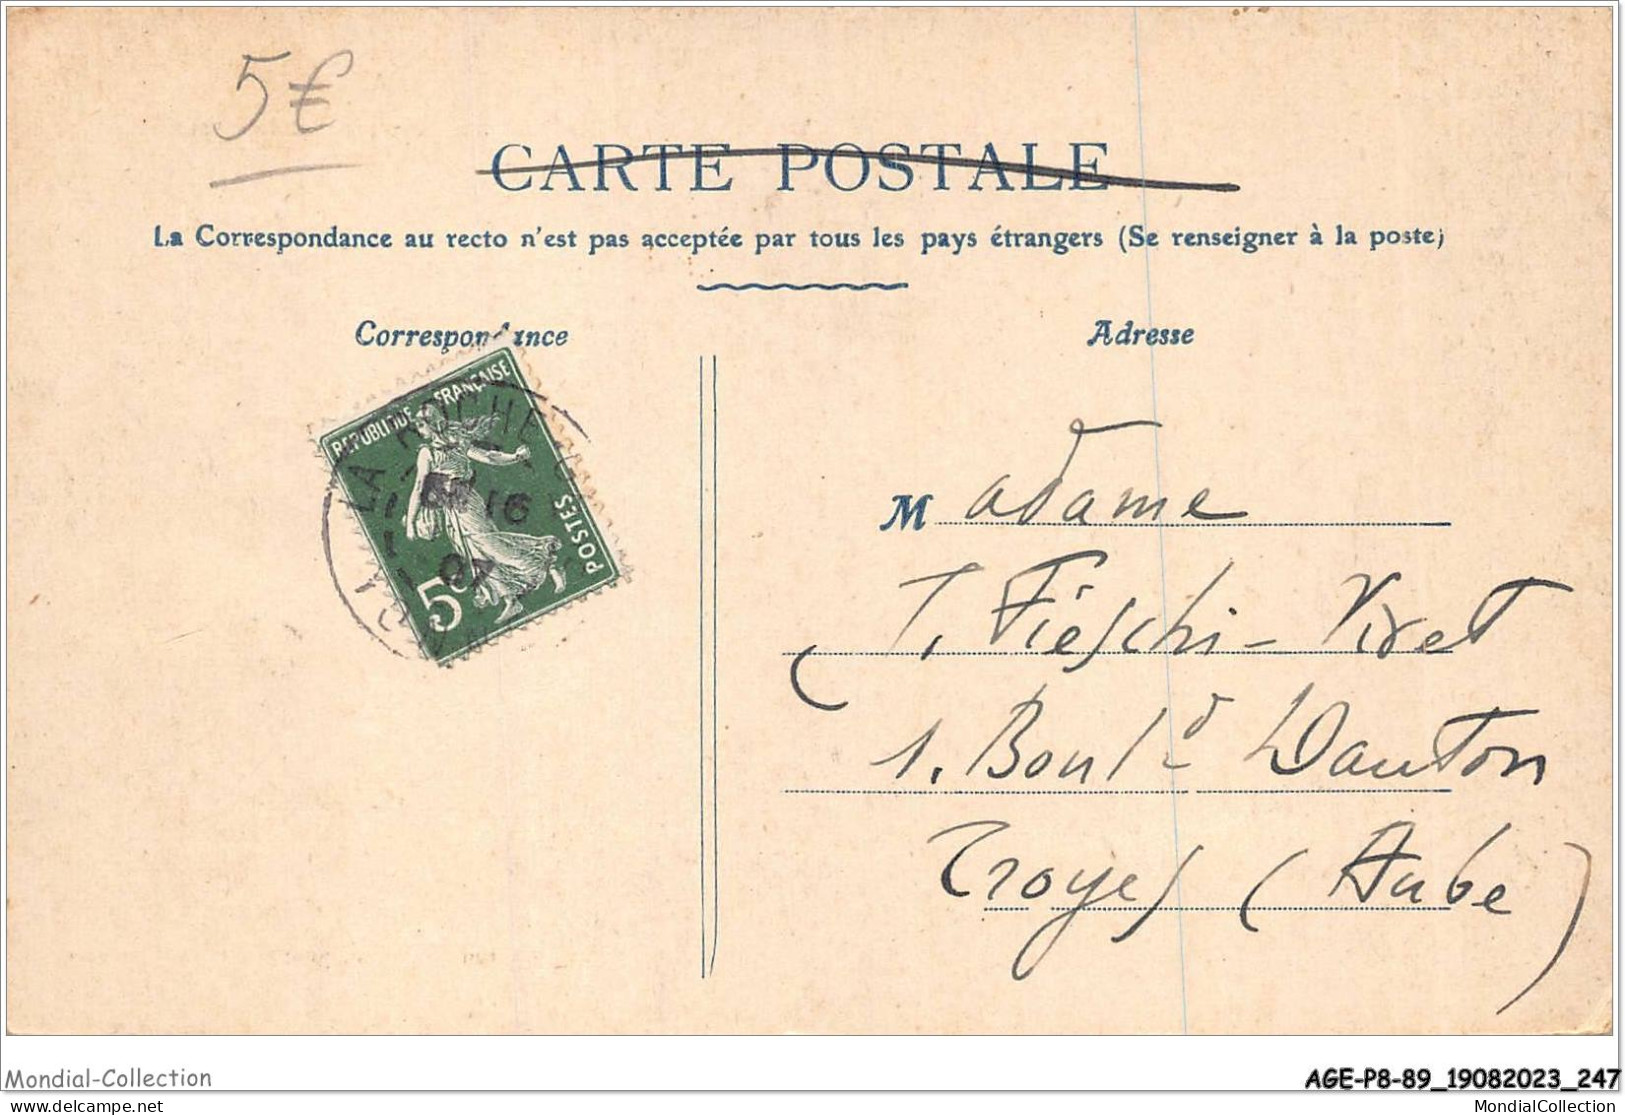 5€
CARTE POSTALE
La Correspondance au recto n'est pas acceptée par tous les pays étrangers (Se renseigner à la poste)
Correspondance
Adresse
REPUBLIQUE FRANÇAISE
POSTES
5c
LA ROCHE
16
07
Madame
T. Fieschi-Viret
1. Boulᵈ Danton
Troyes (Aube)
Mondial-Collection
AGE-P8-89_19082023_247
delcampe.net
MondialCollection